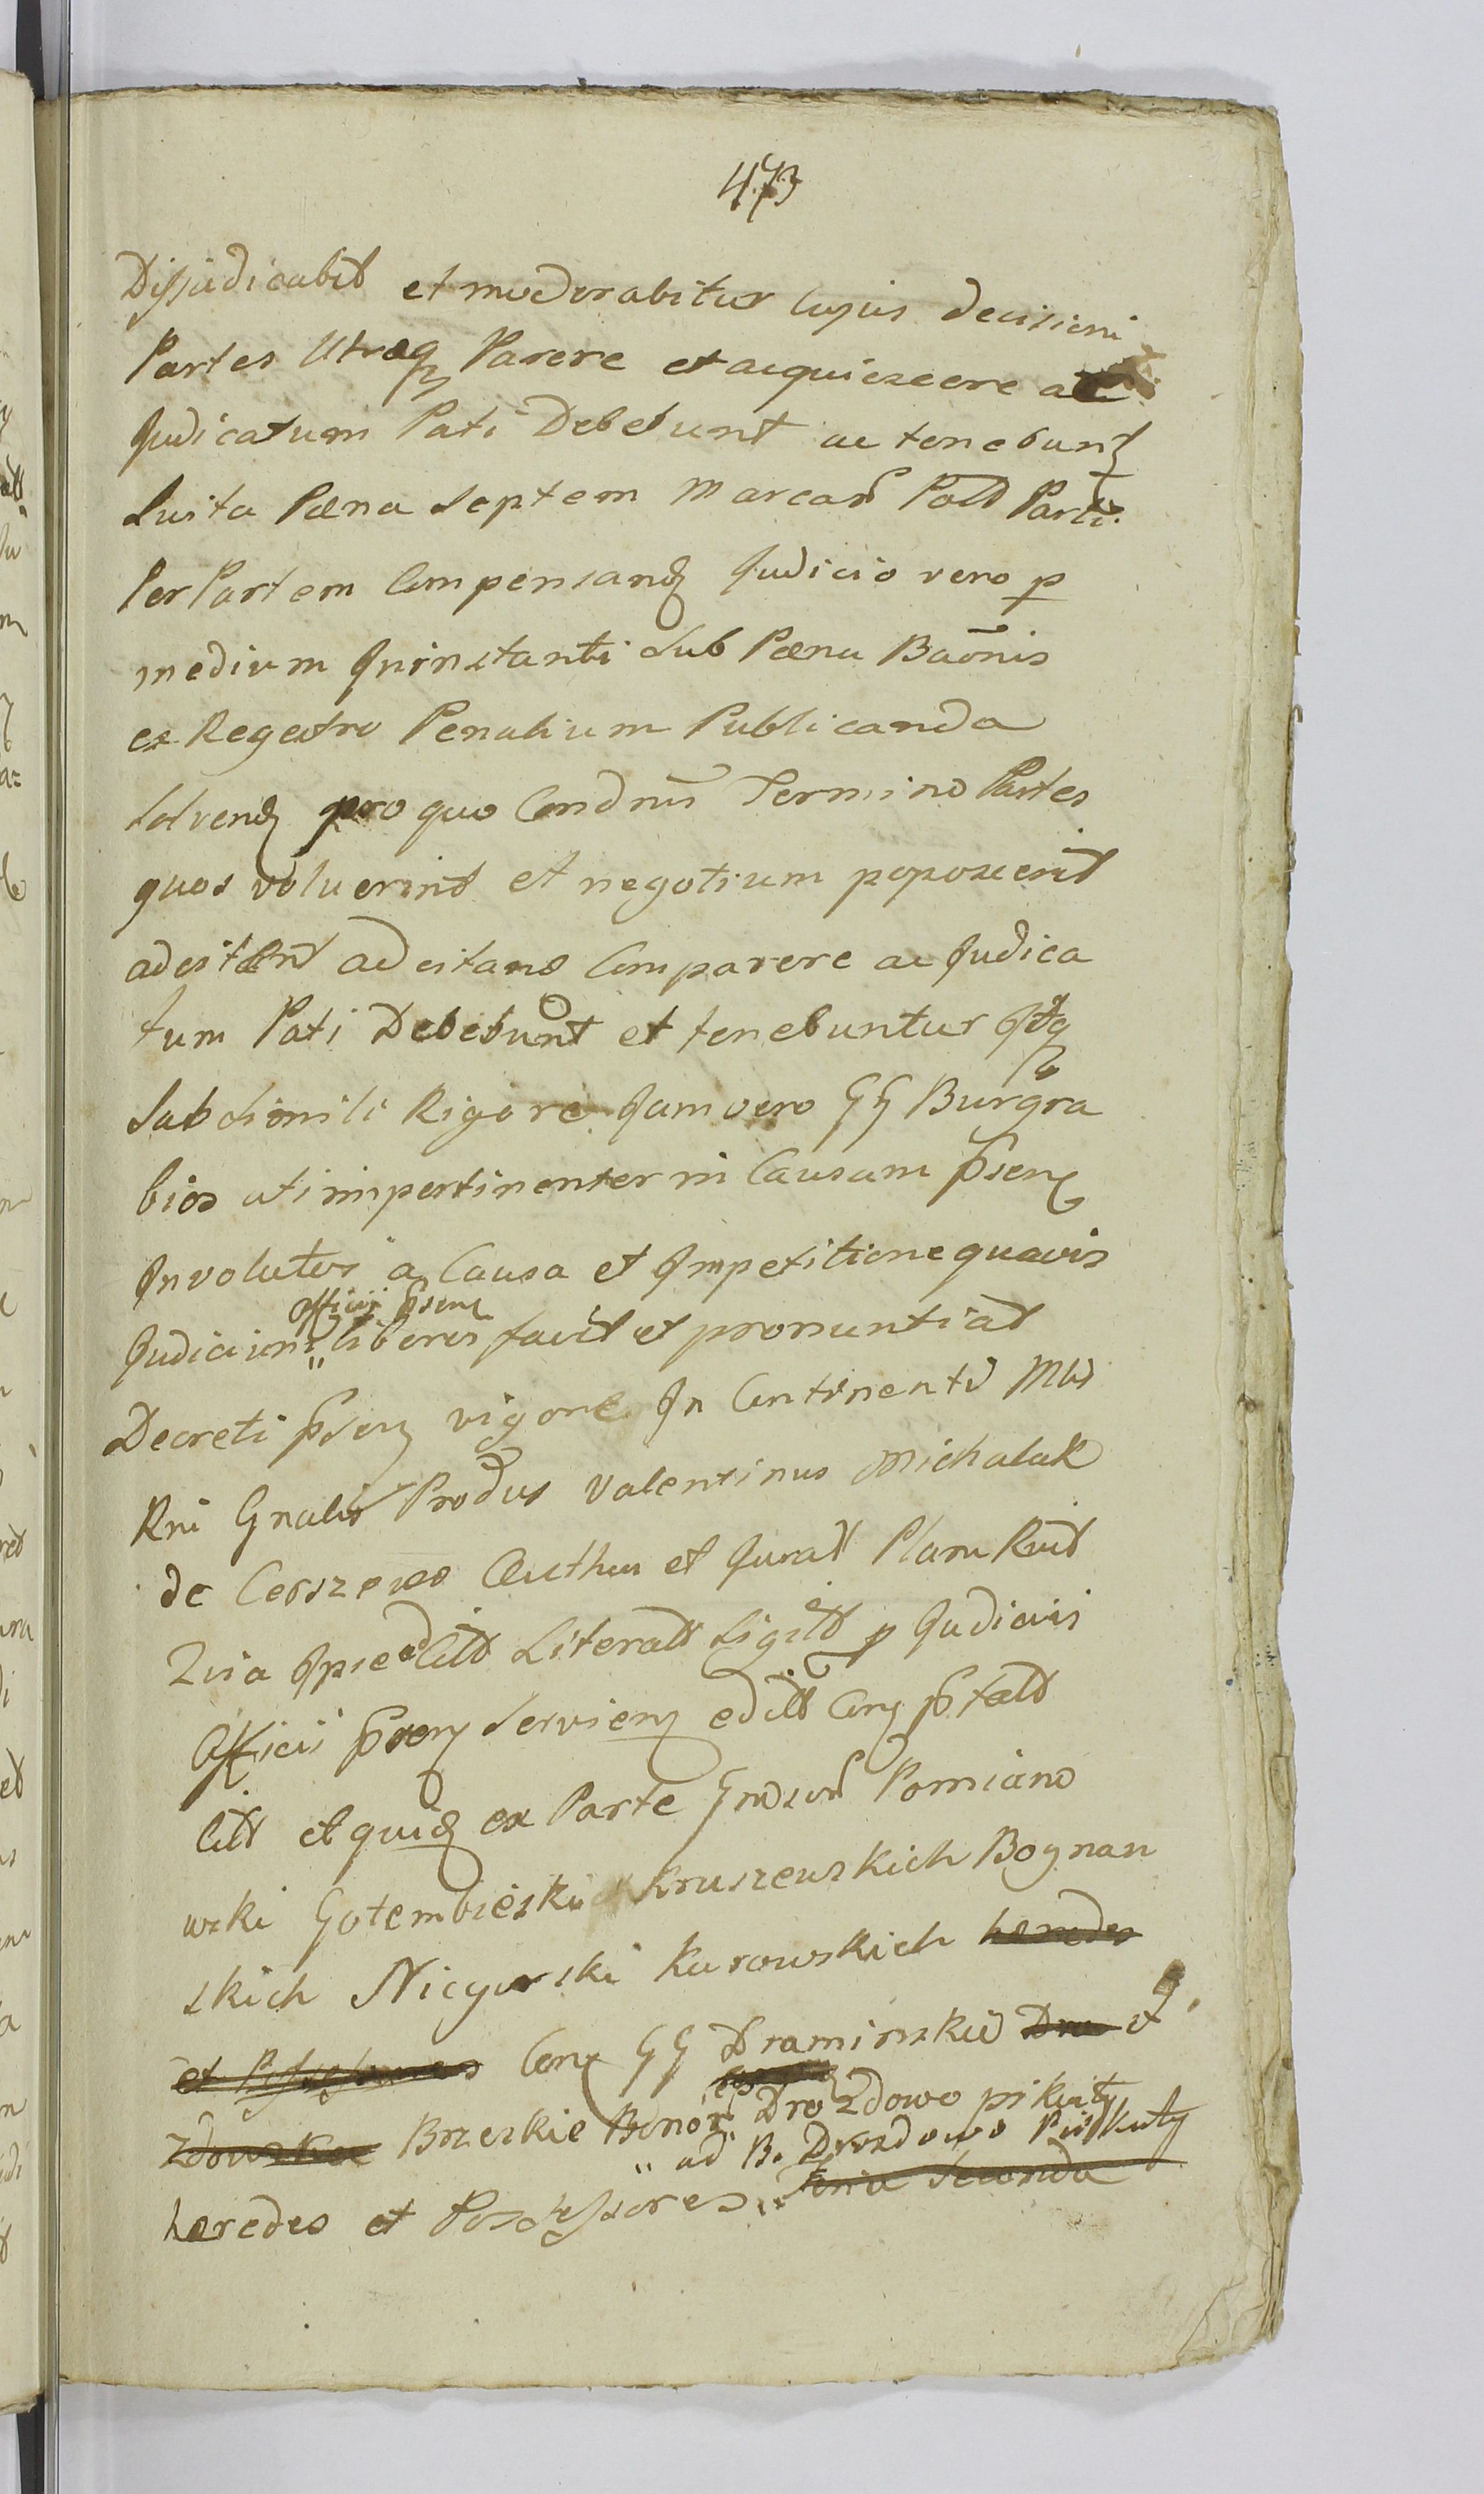 473
Dijudicabit et moderabitur Cujus decisioni
Partes Utraq Parere et acquiescere ac
Judicatum Pati Debebunt ac tenebunt
Luita Pæna Septem Marcar Pold Parti
Per Partem Compensand Judicio vero p
medium Juri instanti Sub Pæna Baonis
ex Regestro Penalium Publicanda
Solvend pro quo Condnti Termino Partes
quos voluerint et negotium poposcerit
adcitent adcitand Comparere ac Judica
tum Pati Debebunt et tenebuntur Idq
Sub Simili Rigore Jam vero GG Burgra
bios uti impertinenter in Causam Psen
Involutos a Causa et Impetitione quavis
Officii Psen
Judicium liberos facit et pronuntiat
Decreti Psen vigore In Continenti Mtis
Rni Gnalis Produs Valentinus Michalak
de Cerszewo Authen et Jurat Plane Rcit
Quia Ipse Citt Literatt Sigilt p Judicium
Officii Psen Servien edill Con Pstatt
Citt et quid ex Parte Gndsor Pomiano
wski Gotembieskich Kruszewskich Bognan
skich Nicgorski Kurowskich hæredes
et Possessores Con GG Draminskie Dro et
zdowskie Brzeskie Bonor Drozdowo pikuty
ad B. Drozdowo Pikuty
hæredes et Possessores Feria Secunda